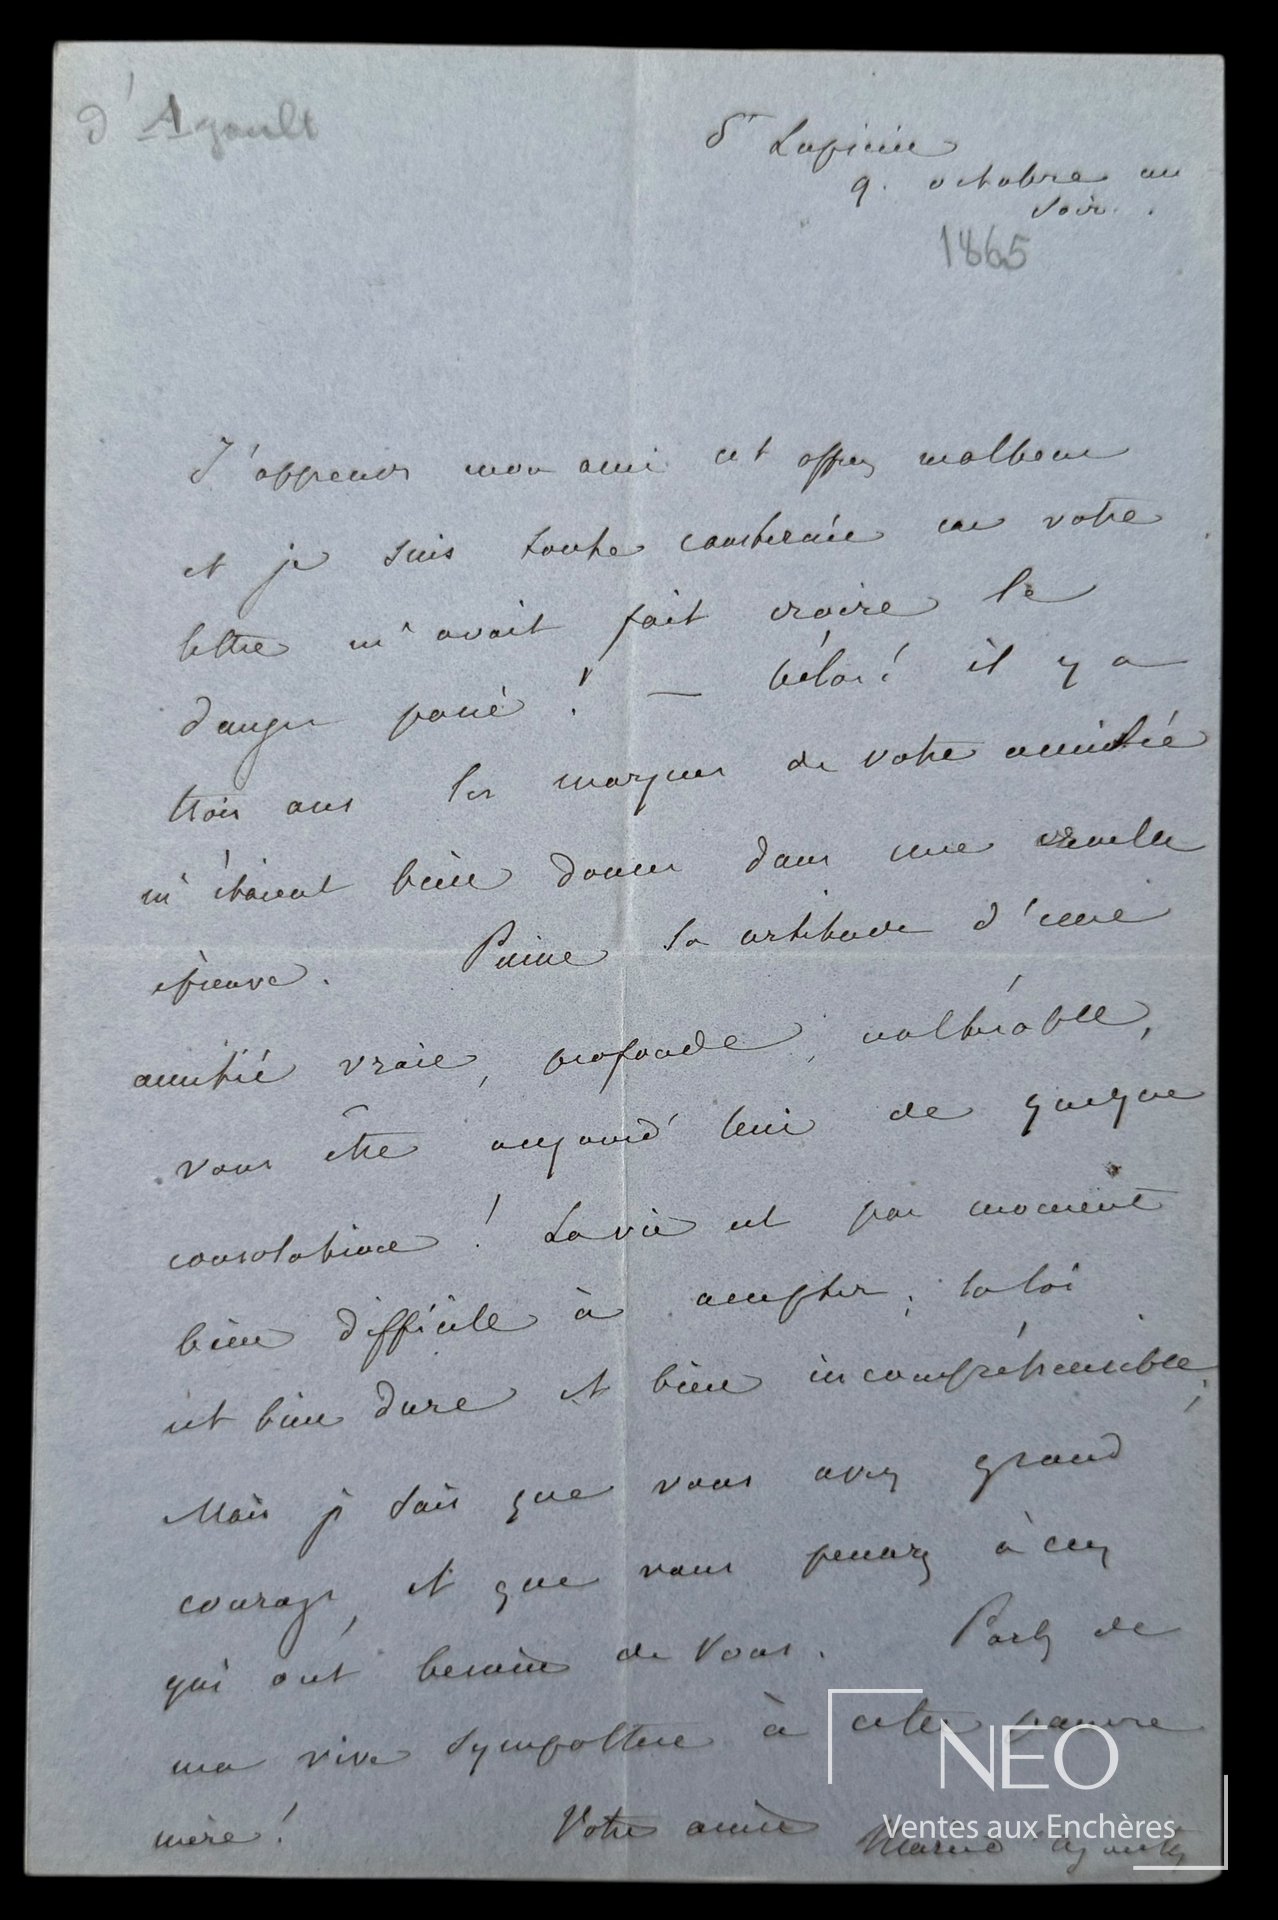 d'Agoult
St Lupicin
9. octobre au
soir.
1865
J'apprens mon ami cet affreux malheur
et je suis toute consternée car votre
lettre m'avait fait croire le
danger passé! — hélas! il y a
trois ans les marques de votre amitié
m'étaient bien douces dans une cruelle
épreuve. Puisse la certitude d'une
amitié vraie, profonde, inaltérable,
vous être aujourd'hui de quelque
consolation! La vie est par moment
bien difficile à accepter; la loi
est bien dure et bien incompréhensible;
Mais je sais que vous avez grand
courage, et que vous pensez à ceux
qui ont besoin de vous. Parlez de
ma vive sympathie à cette pauvre
mère! Votre amie
Marie d'Agoult
NEO
Ventes aux Enchères